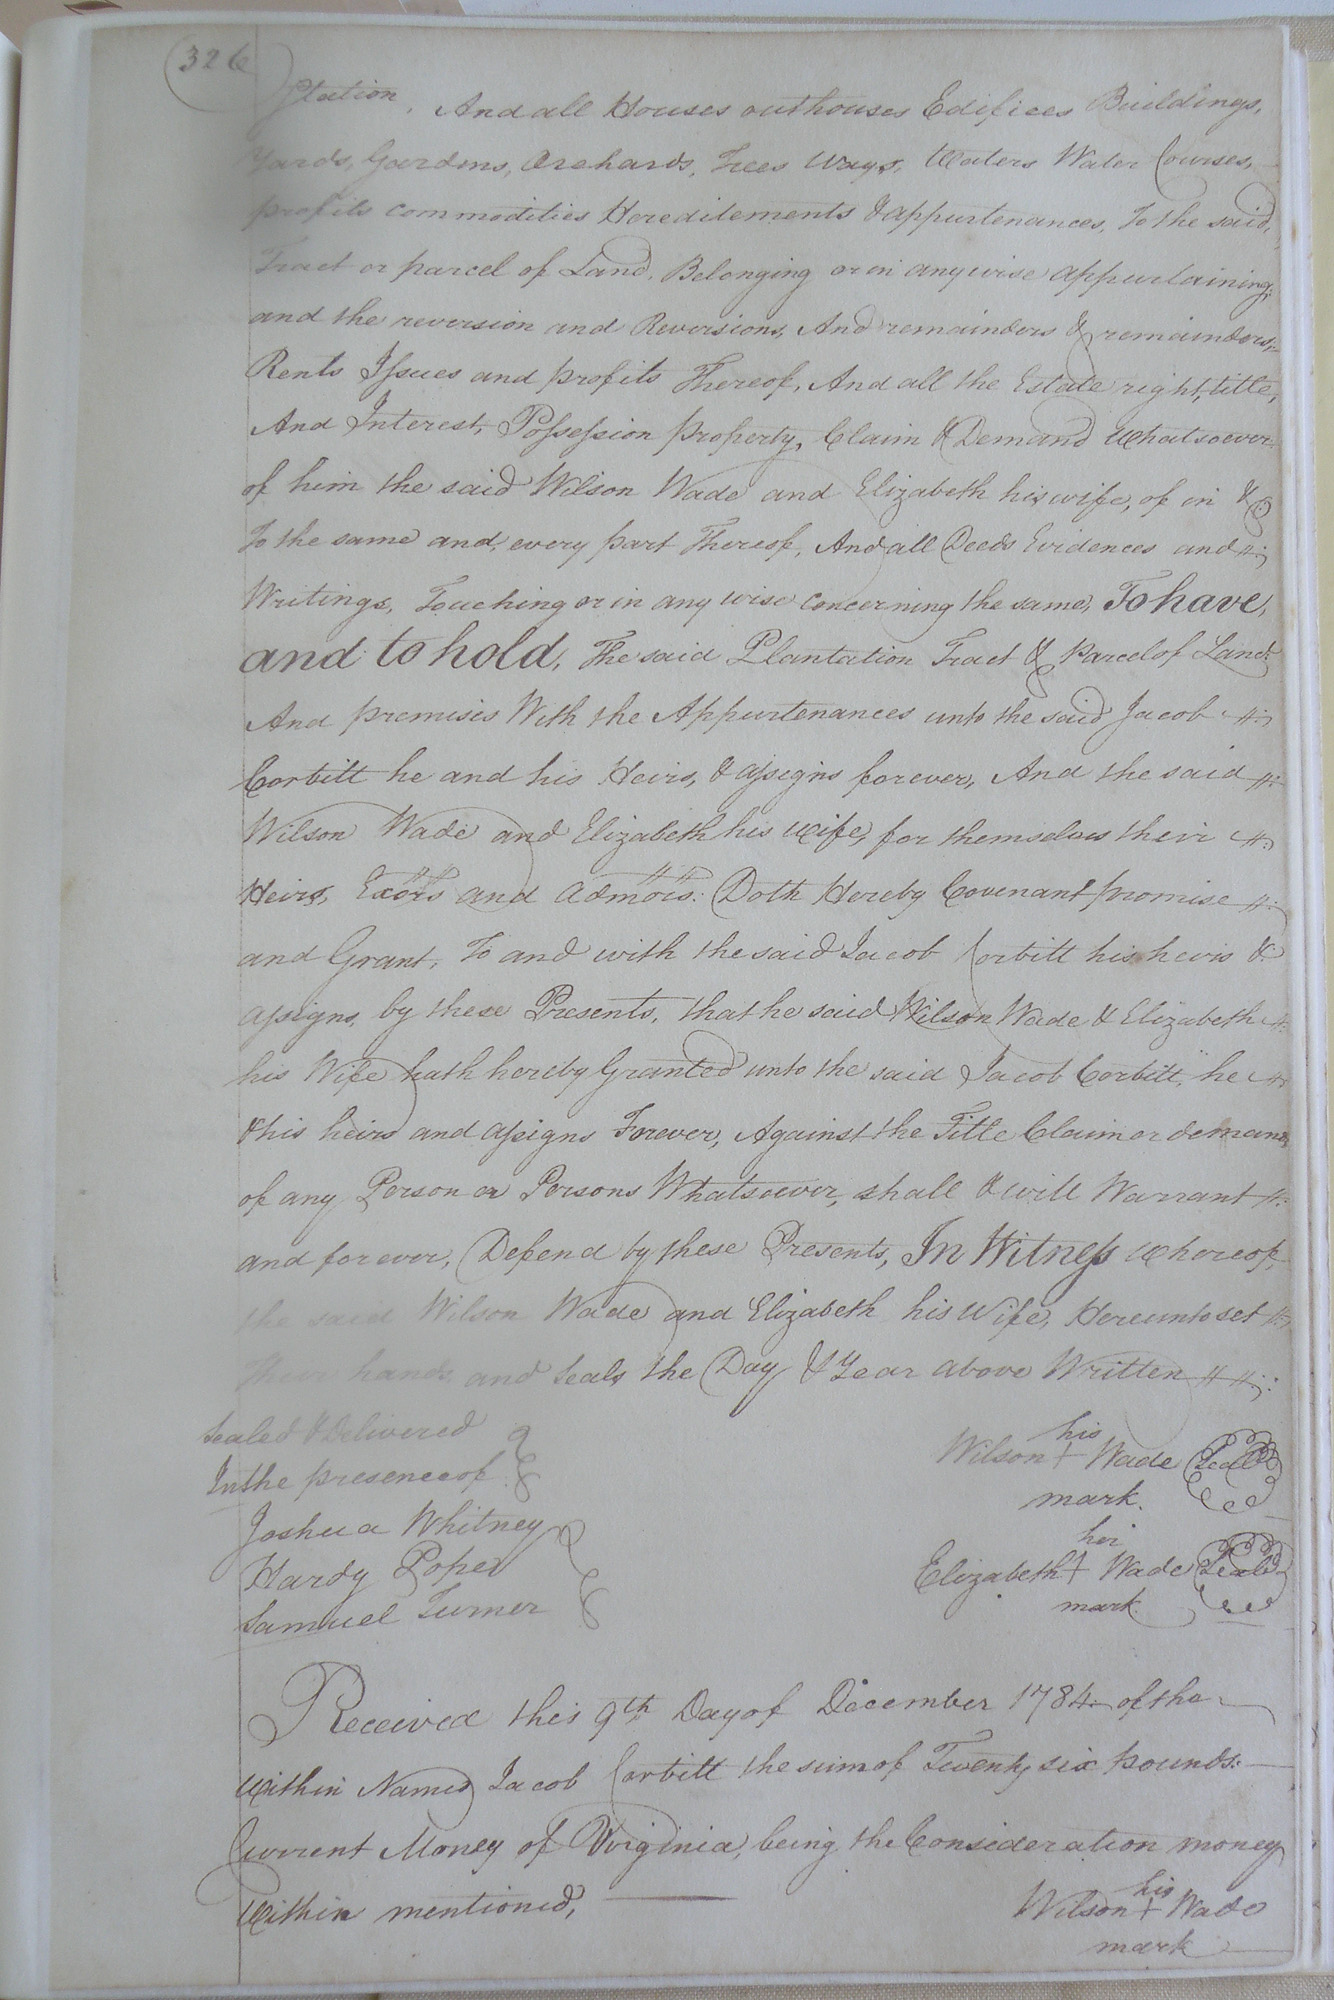 326
tation, And all Houses outhouses Edifices Buildings,
Yards, Gardens, Orchards, Trees Ways, Waters Water Courses,
profits commodities Hereditements & appurtenances, To the said,
Tract or parcel of Land, Belonging or in anywise appurtaining;
and the reversion and Reversions, And remainders & remainders,
Rents Issues and profits Thereof, And all the Estate right, title,
And Interest, Possession property, Claim & Demand Whatsoever
of him the said Wilson Wade and Elizabeth his wife, of in &
To the same and, every part Thereof, And all Deeds Evidences and
Writings, Touching or in any wise concerning the same, To have,
and to hold, The said Plantation Tract & Parcel of Land
And premisis With the Appurtenances unto the said Jacob
Corbitt he and his Heirs, & assigns forever, And the said
Wilson Wade and Elizabeth his Wife, for themselves their
Heirs, Exors and Admors: Doth Hereby Covenant promise
and Grant, To and with the said Jacob Corbitt his heirs &
assigns, by these Presents, that he said Wilson Wade & Elizabeth
his Wife hath hereby Granted unto the said Jacob Corbitt, he
& his heirs and assigns Forever, Against the Title Claim or demand
of any Person or Persons Whatsoever, shall & will Warrant
and forever, Defend by these Presents, In Witness Whereof,
the said Wilson Wade and Elizabeth his Wife, Hereunto set
their hands and Seals the Day & Year above Written
Sealed & Delivered
In the presence of
Joshua Whitney
Hardy Pope
Samuel Turner
his
Wilson + Wade Seal
mark.
her
Elizabeth + Wade Seal
mark
Received this 9th Day of December 1784 of the
Within Named Jacob Corbitt the sum of Twenty six pounds
Current Money of Virginia, being the Consideration money
Within mentioned,
his
Wilson + Wade
mark